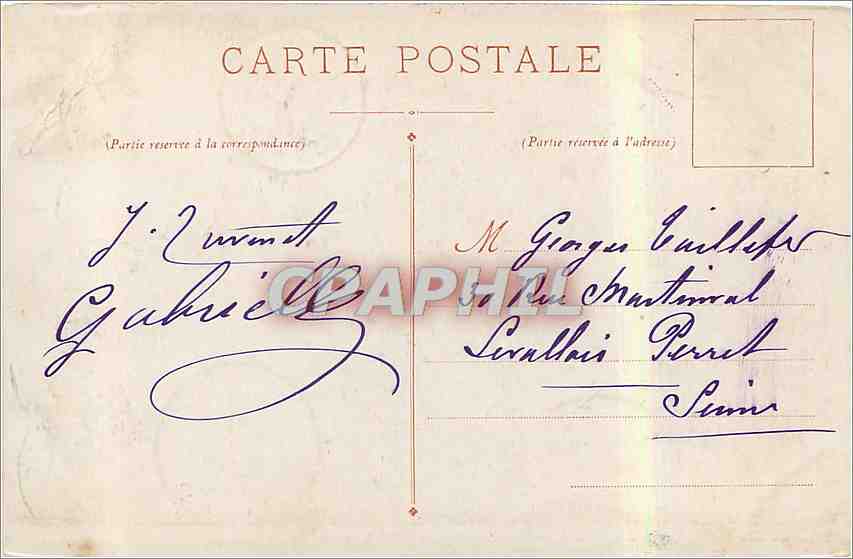 CARTE POSTALE
(Partie reservee à la correspondance)
(Partie réservée à l'adresse)
Gabrielle
M Georges Taillefer
30 Rue Martinval
Levallois Perret
Seine
CPAPHIL